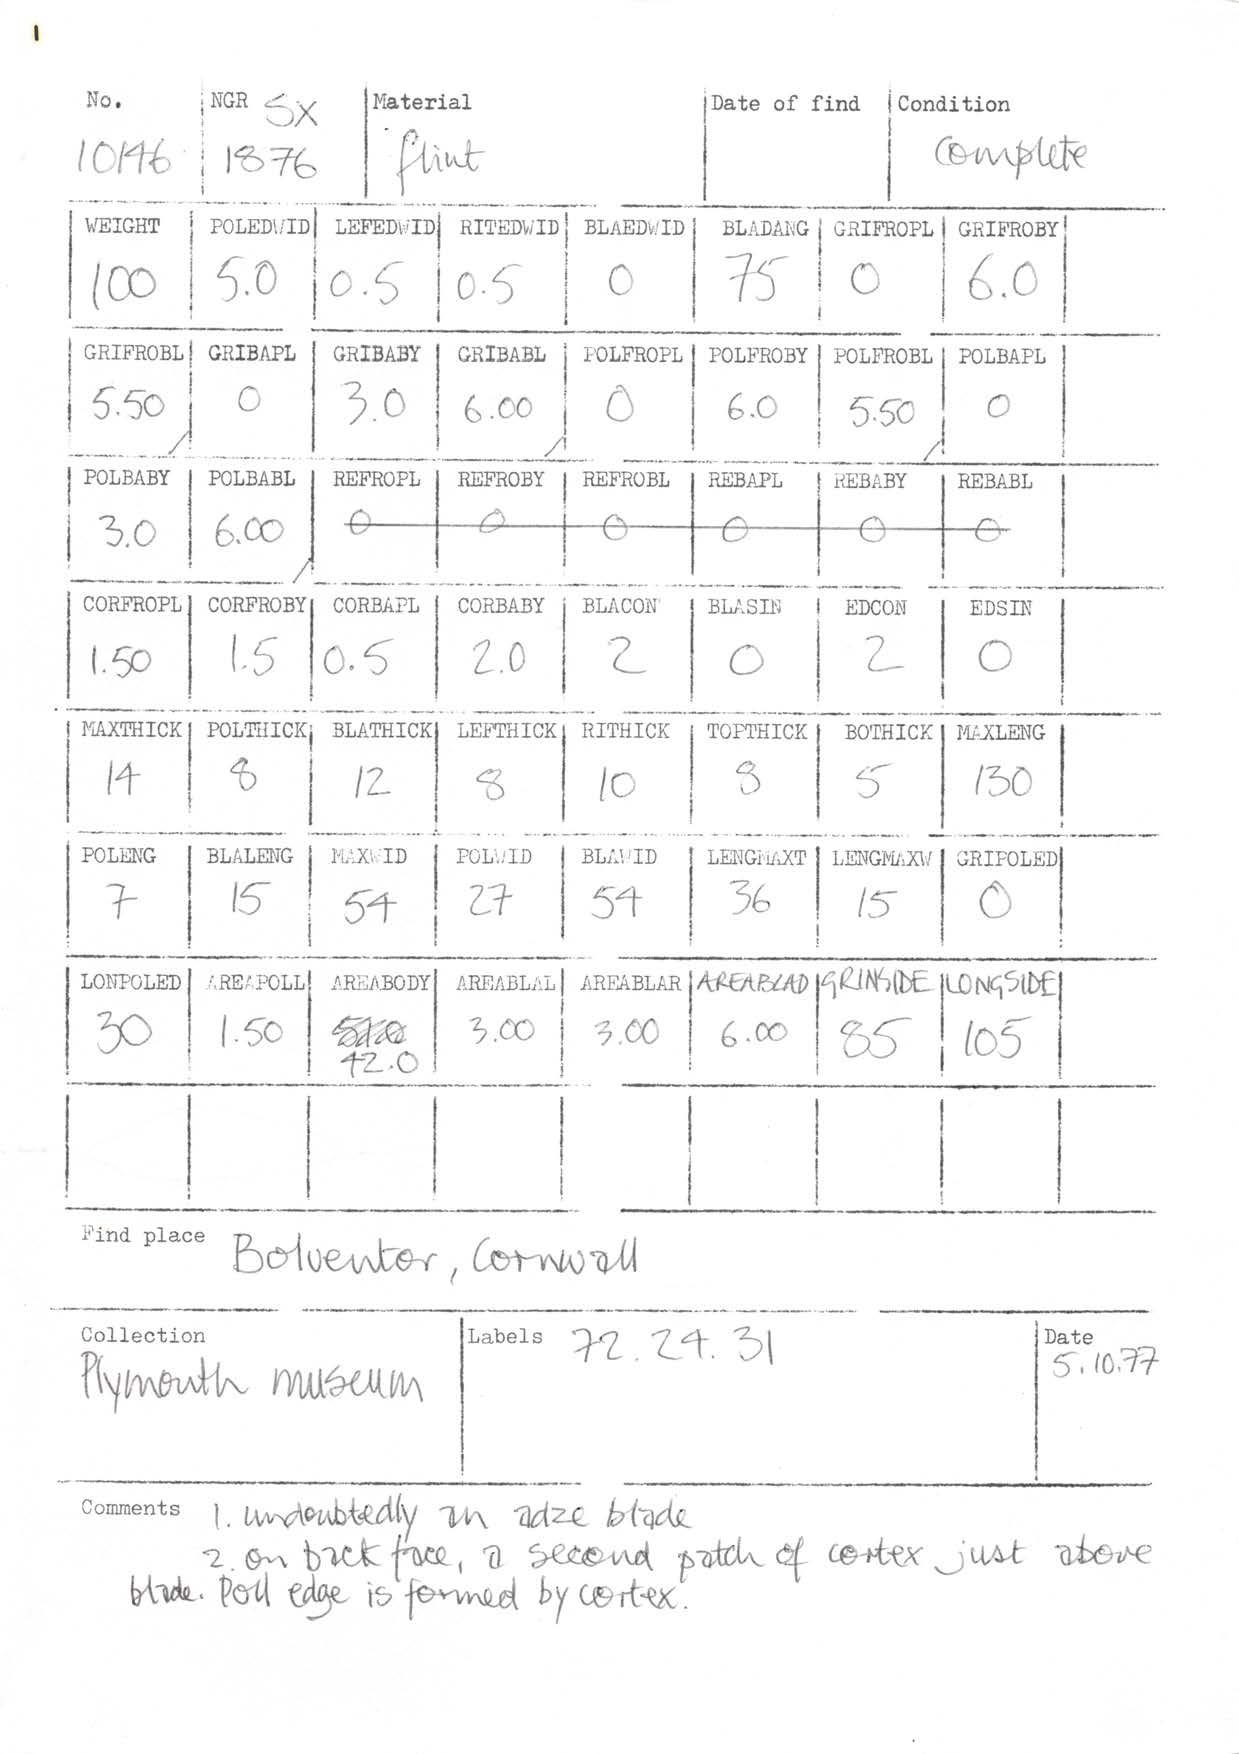 1
No. NGR SX Material Date of find Condition
10146 1876 flint complete
WEIGHT POLEDWID LEFEDWID RITEDWID BLAEDWID BLADANG GRIFROPL GRIFROBY
100 5.0 0.5 0.5 0 75 0 6.0
GRIFROBL GRIBAPL GRIBABY GRIBABL POLFROPL POLFROBY POLFROBL POLBAPL
5.50 0 3.0 6.00 0 6.0 5.50 0
POLBABY POLBABL REFROPL REFROBY REFROBL REBAPL REBABY REBABL
3.0 6.00 0 0 0 0 0 0
CORFROPL CORFROBY CORBAPL CORBABY BLACON BLASIN EDCON EDSIN
1.50 1.5 0.5 2.0 2 0 2 0
MAXTHICK POLTHICK BLATHICK LEFTHICK RITHICK TOPTHICK BOTHICK MAXLENG
14 8 12 8 10 8 5 130
POLENG BLALENG MAXWID POLWID BLAWID LENGMAXT LENGMAXW GRIPOLED
7 15 54 27 54 36 15 0
LONPOLED AREAPOLL AREABODY AREABLAL AREABLAR AREABLAD GRINSIDE LONGSIDE
30 1.50 3.00 3.00 6.00 85 105
42.0
Find place Bolventor, Cornwall
Collection Labels 72.24.31 Date
Plymouth museum 5.10.77
Comments 1. undoubtedly an adze blade
2. on back face, a second patch of cortex just above
blade. Poll edge is formed by cortex.